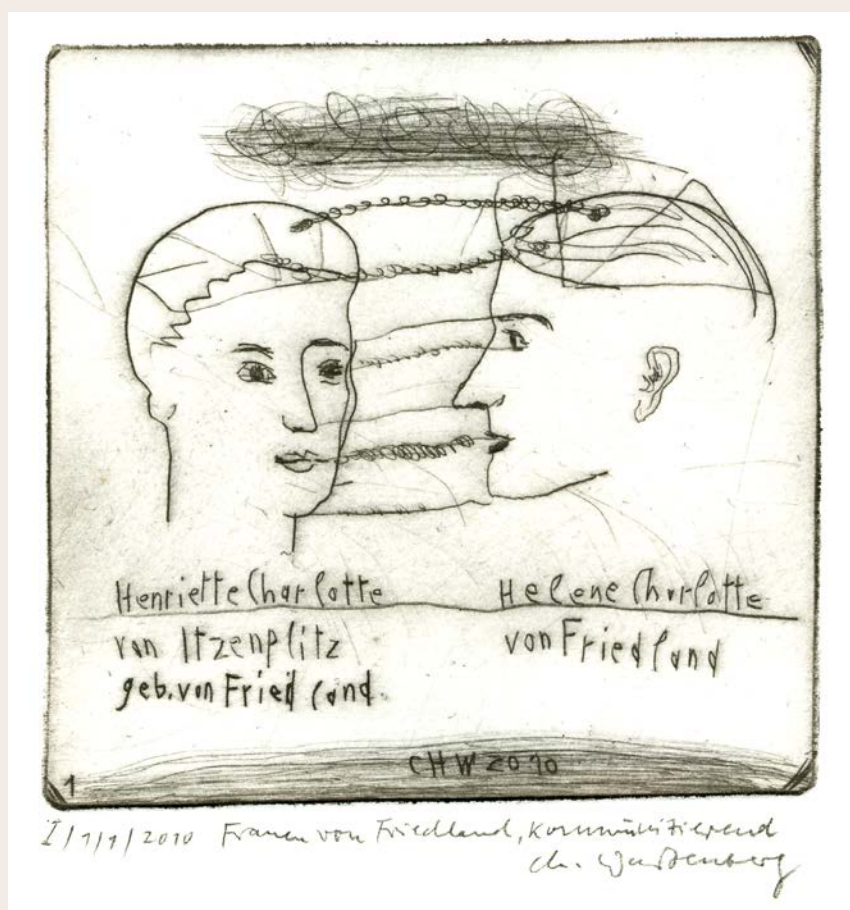 Henriette Charlotte
von Itzenplitz
geb. von Friedland.
Helene Charlotte
von Friedland
CHW 2010
1
I/1/1/2010 Frauen von Friedland, kommunizierend
ch. Wartenberg